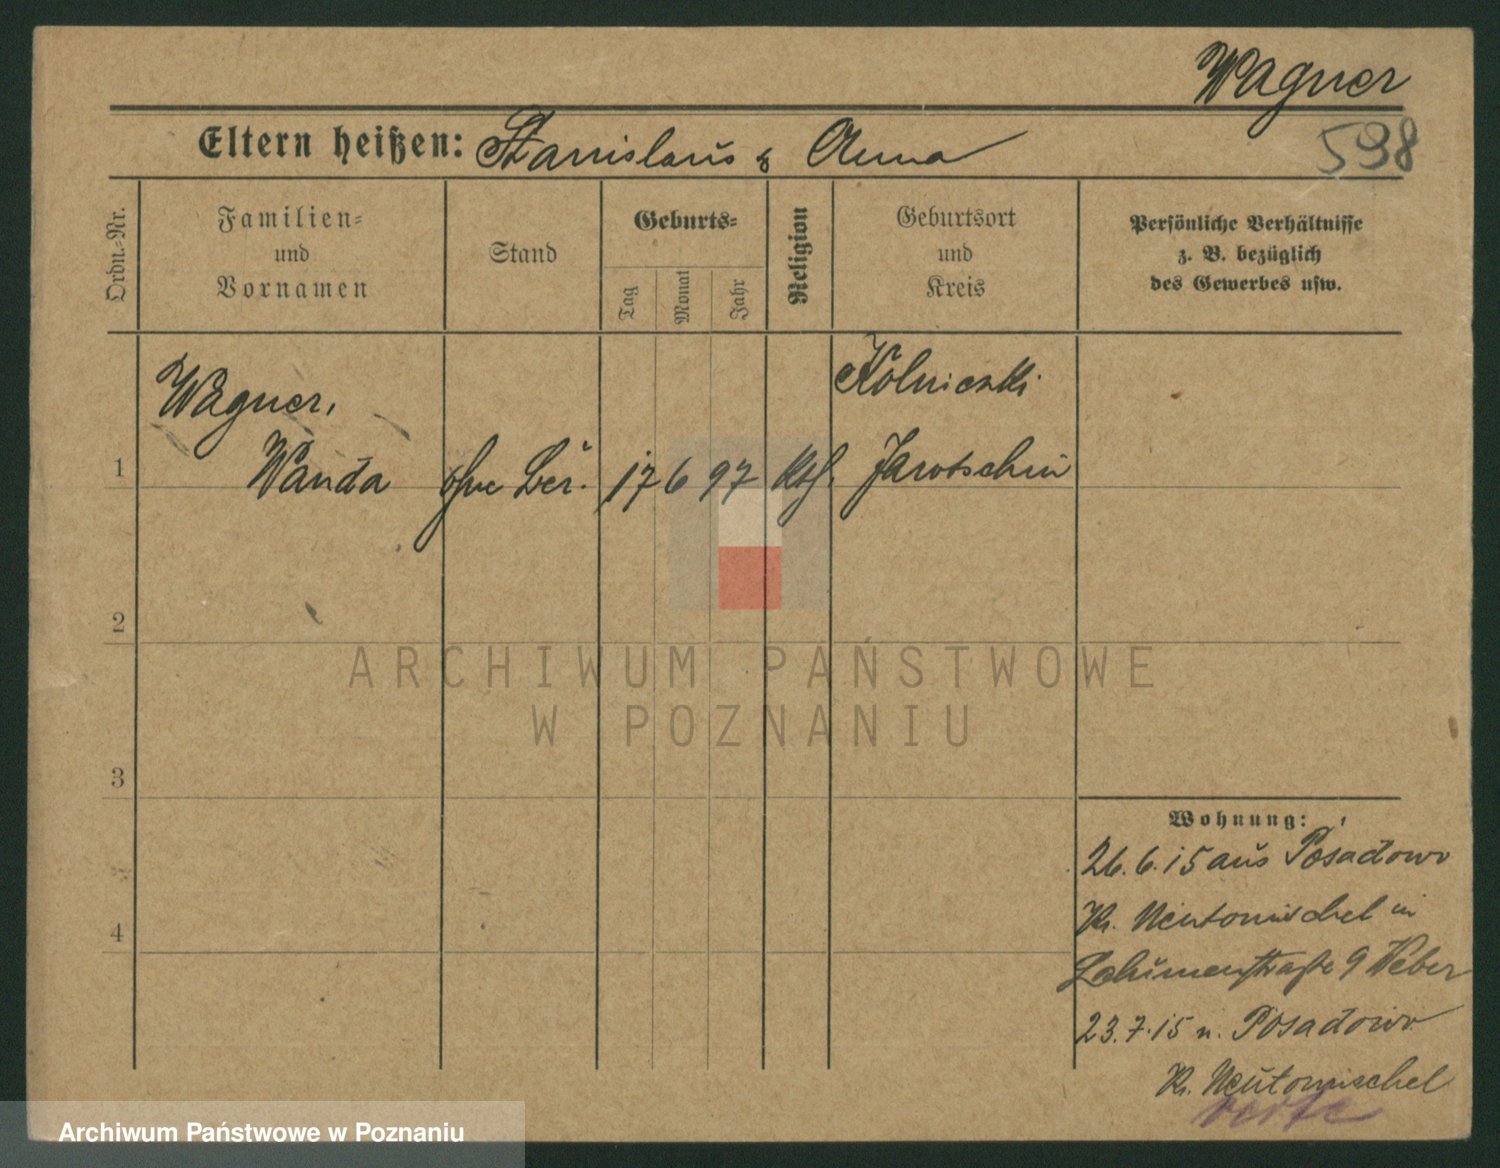 Wagner
598
Eltern heißen: Stanislaus & Anna
Ordn.-Nr.
Familien-
und
Vornamen
Stand
Geburts-
Tag
Monat
Jahr
Religion
Geburtsort
und
Kreis
Persönliche Verhältnisse
z. B. bezüglich
des Gewerbes usw.
1
Wagner,
Wanda
ohne Ber.
17 6 97
Kth.
Kolniczki
Jarotschin
2
3
4
ARCHIWUM PAŃSTWOWE
W POZNANIU
Wohnung:
26.6.15 aus Posadowo
Kr. Neutomischel in
9 Weber
23.7.15 n. Posadowo
Kr. Neutomischel
Archiwum Państwowe w Poznaniu